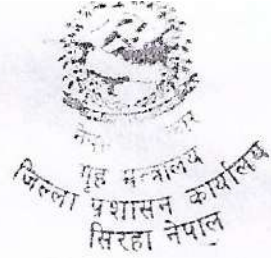 गृह मन्त्रालय
जिल्ला प्रशासन कार्यालय
सिरहा नेपाल